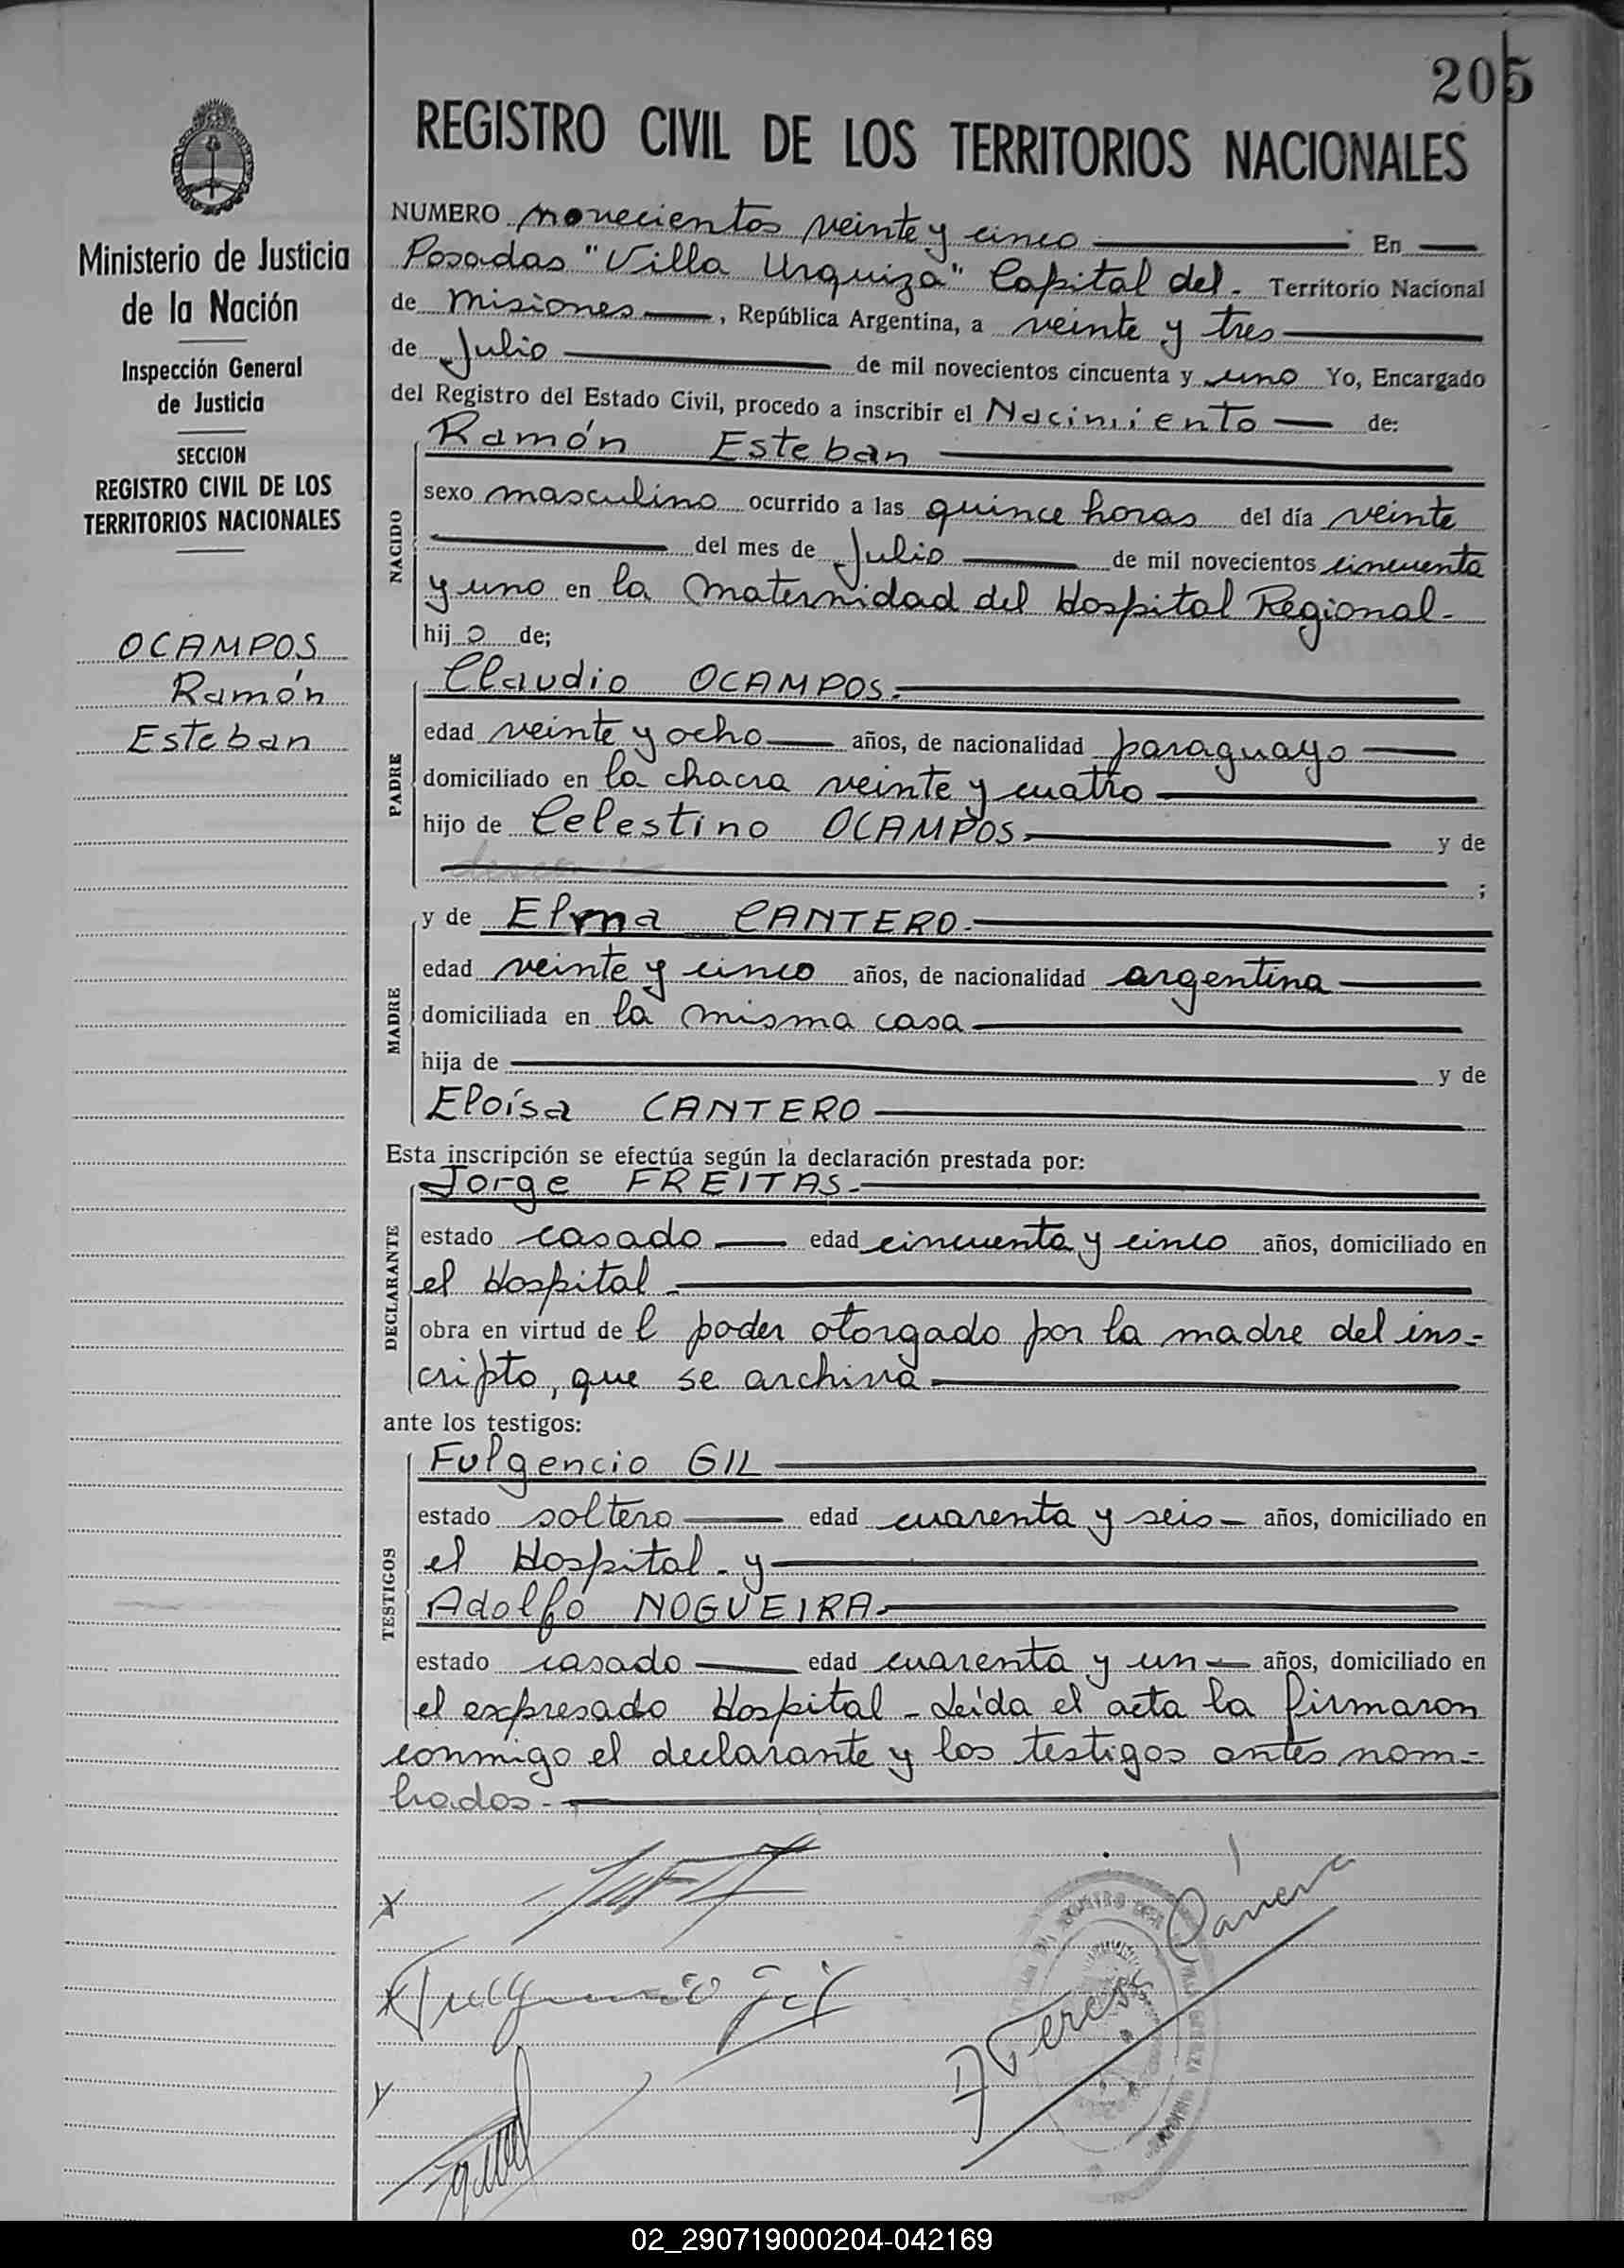 205
REGISTRO CIVIL DE LOS TERRITORIOS NACIONALES
Ministerio de Justicia
de la Nación
Inspección General
de Justicia
SECCION
REGISTRO CIVIL DE LOS
TERRITORIOS NACIONALES
OCAMPOS
Ramón
Esteban
NUMERO novecientos veinte y cinco En
Posadas "Villa Urquiza" Capital del. Territorio Nacional
de Misiones, República Argentina, a veinte y tres
de Julio de mil novecientos cincuenta y uno Yo, Encargado
del Registro del Estado Civil, procedo a inscribir el Nacimiento de:
NACIDO
Ramón Esteban
sexo masculino ocurrido a las quince horas del día veinte
del mes de Julio de mil novecientos cincuenta
y uno en la Maternidad del Hospital Regional.
hijo de;
PADRE
Claudio OCAMPOS.
edad veinte y ocho años, de nacionalidad paraguayo
domiciliado en la chacra veinte y cuatro
hijo de Celestino OCAMPOS. y de
;
MADRE
y de Elma CANTERO.
edad veinte y cinco años, de nacionalidad argentina
domiciliada en la misma casa
hija de y de
Eloísa CANTERO
Esta inscripción se efectúa según la declaración prestada por:
DECLARANTE
Jorge FREITAS.
estado casado edad cincuenta y cinco años, domiciliado en
el Hospital.
obra en virtud de l poder otorgado por la madre del ins-
cripto, que se archiva
ante los testigos:
TESTIGOS
Fulgencio GIL
estado soltero edad cuarenta y seis años, domiciliado en
el Hospital - y
Adolfo NOGUEIRA.
estado casado edad cuarenta y un años, domiciliado en
el expresado Hospital - Leída el acta la firmaron
conmigo el declarante y los testigos antes nom-
brados.
Fulgencio Gil
02_290719000204-042169